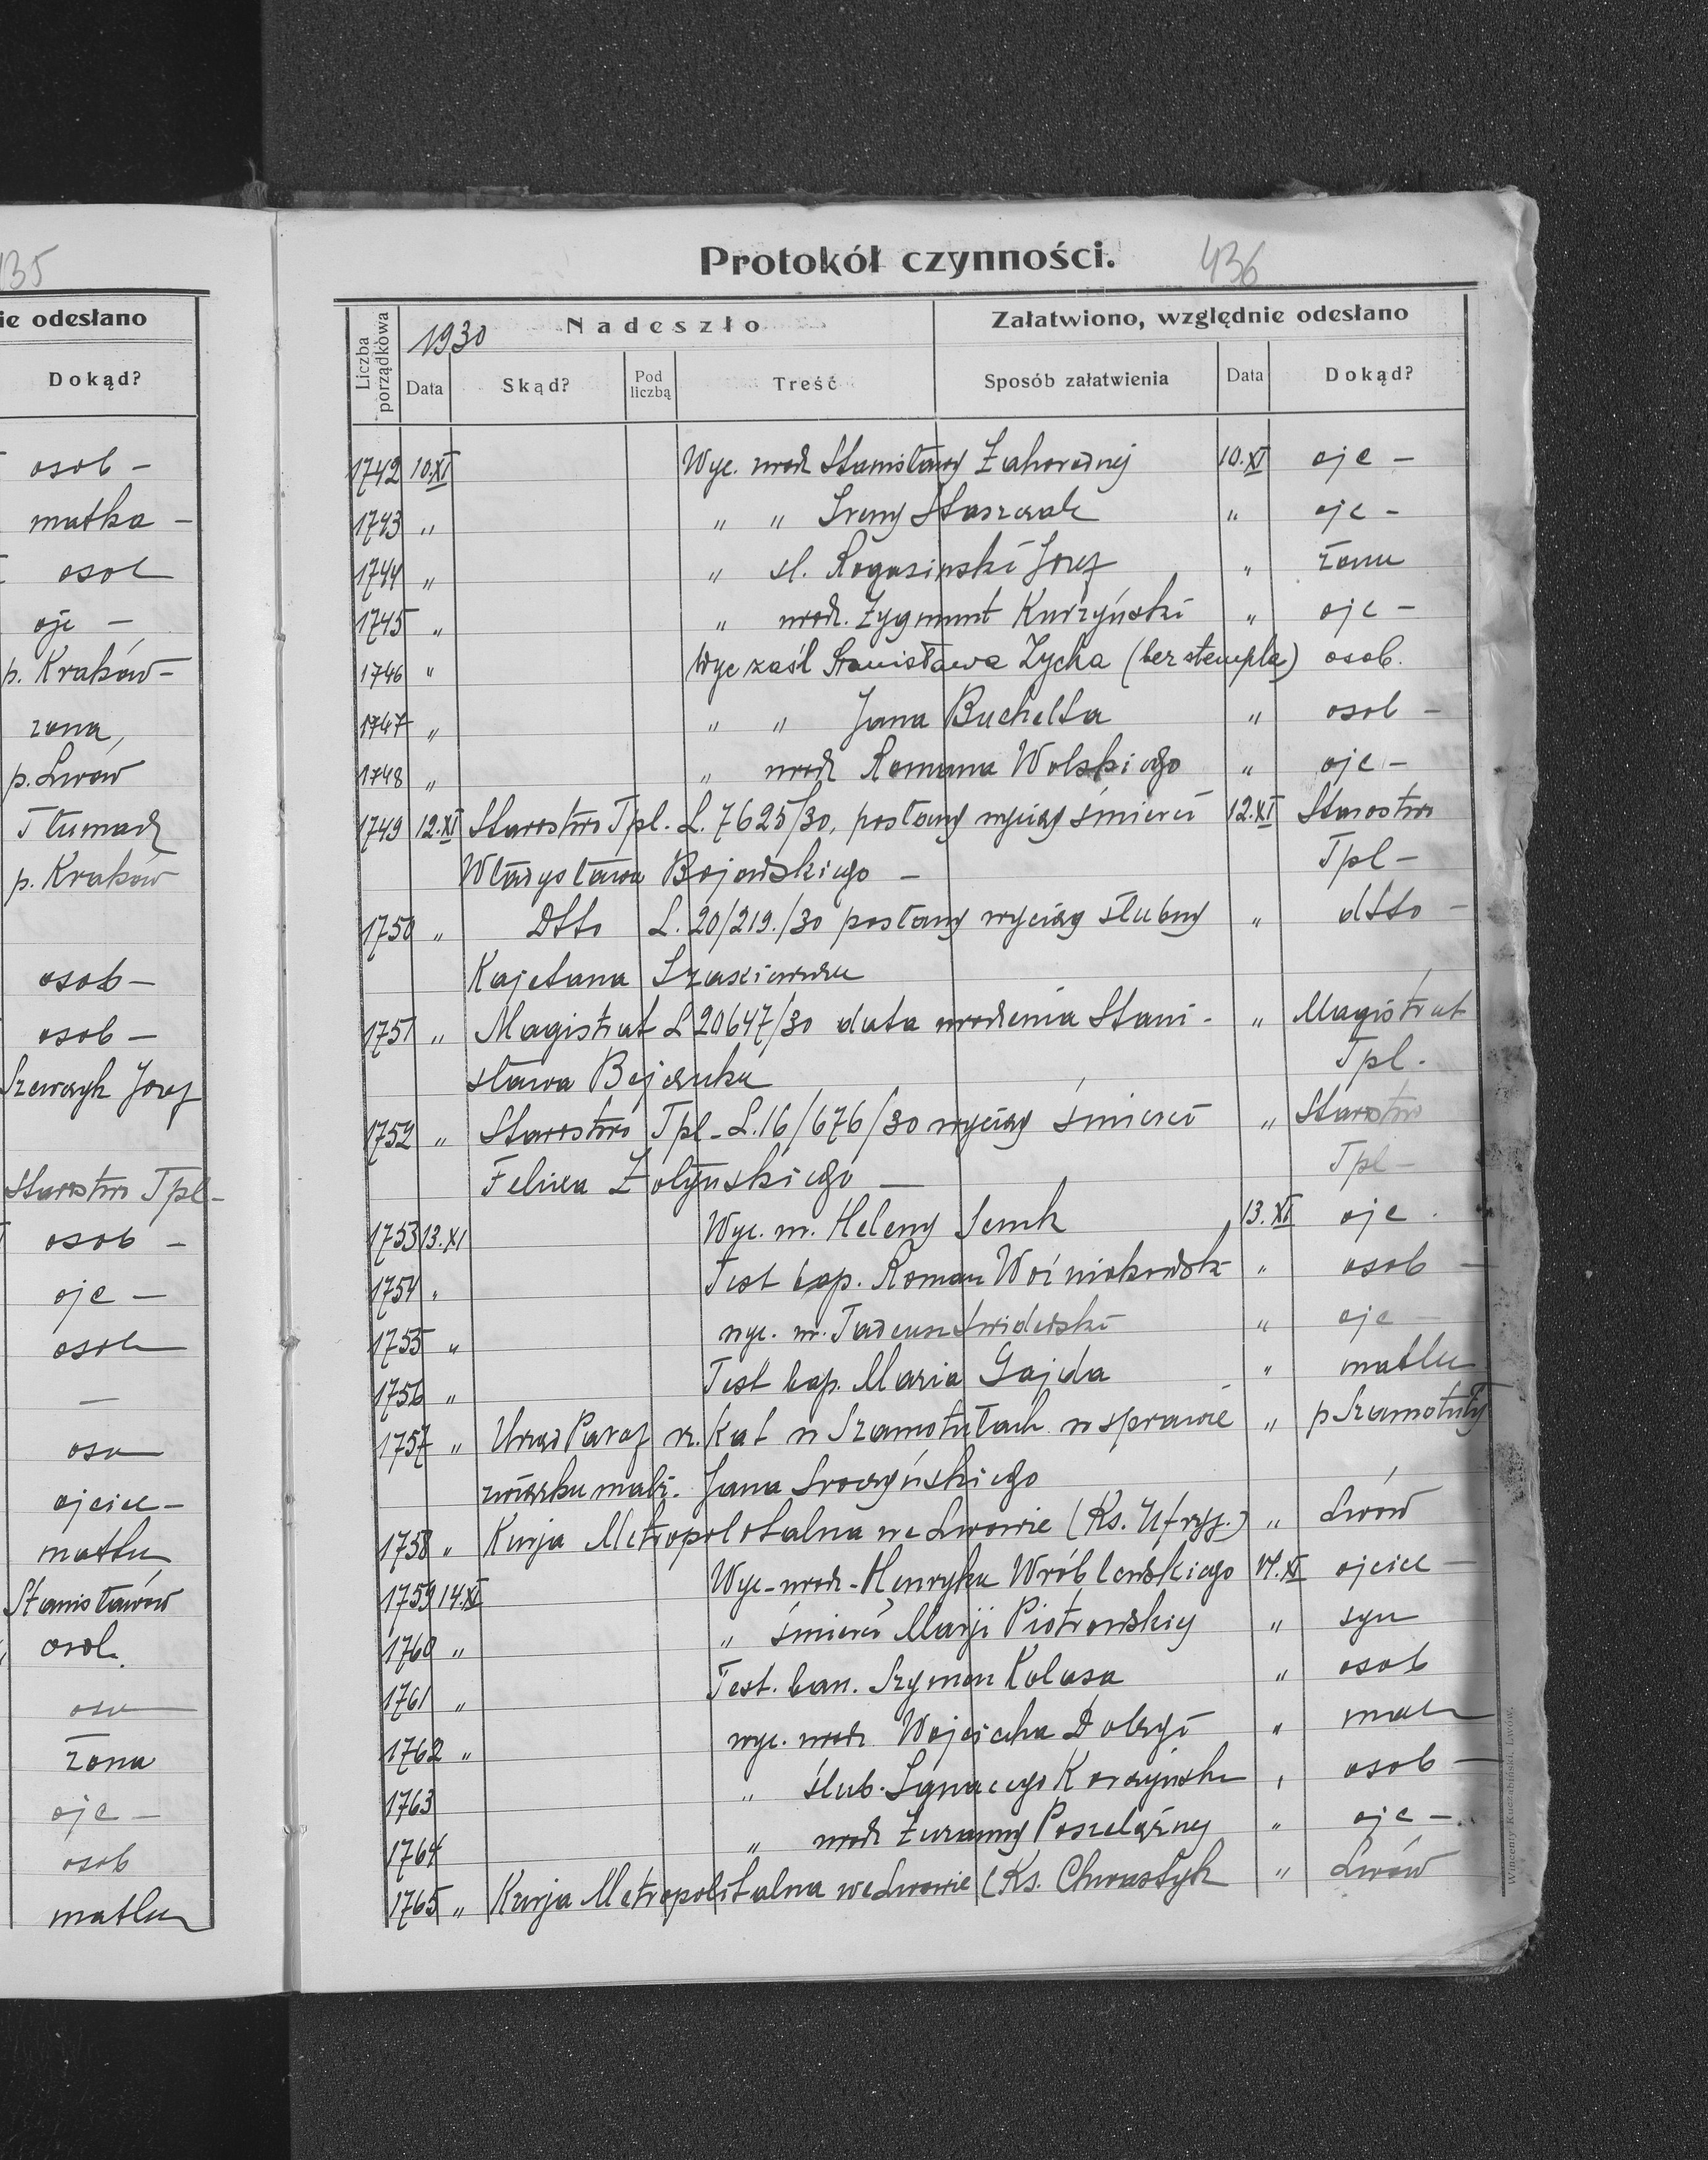 135
ie odesłano
Dokąd?
osob -
matka -
osob
ojc -
p. Kraków -
zona,
p. Lwow
Tłumacz
p. Kraków
osob -
osob -
Szewczyk Jozef
Starostwo Tpl -
osob -
ojc -
osob
-
oso
ojciec -
matka
Stanisławów
osob.
oso
żona
ojc -
osob
matka
Protokół czynności. 436
Liczba porządkowa
1930 Nadeszło
Załatwiono, względnie odesłano
Data Skąd? Pod liczbą Treść Sposób załatwienia Data Dokąd?
1742 10.XI Wyc. urodz Stanisławy Zahorodnej 10.XI ojc -
1743 " " " Ireny Staszczak " ojc -
1744 " " śl. Rogosinski Jozef " żona
1745 " " urodz. Zygmunt Kurzyński " ojc -
1746 " Wyc zaśl Stanisława Zycha (bez stempla) osob.
1747 " " " Jana Buchelta " osob -
1748 " " urodz Romana Wolskiego " ojc -
1749 12.XI Starostwo Tpl. L. 7625/30, posłany wyciąg śmierci 12.XI Starostwo
Władysława Bojarskiego - Tpl -
1750 " Dtto L. 20/219./30 posłany wyciąg ślubny " dtto -
Kajetana
1751 " Magistrat L 20647/30 data urodzenia Stani- " Magistrat
sława Bojczuka Tpl.
1752 " Starostwo Tpl - L. 16/676/30 wyciąg śmierci " Starostwo
Feliksa Żołyńskiego - Tpl -
1753 13.XI Wyc. ur. Heleny Semk 13.XI ojc.
1754 " Test bap. Roman Woźniakowsk " osob -
1755 " wyc. ur. Tadeusz Swiderski " ojc -
1756 " Test bap. Maria Gajda " matka
1757 " Urząd Paraf rz. Kat w Szamotułach w sprawie " p Szamotuły
związku małż. Jana Sroczyńskiego
1758 " Kurja Metropolotalna we Lwowie (Ks. Ufryj.) " Lwów
1759 14.XI Wyc - urodz - Henryka Wróblewskiego 14.XI ojciec -
1760 " " śmierci Marji Piotrowskiej " syn
1761 " Test. ban. Szymon Kolasa " osob
1762 " wyc. urodz Wojciecha " mat
1763 " ślub. Ignacego Korzyńsk " osob -
1764 " urodz Zuzanny Poszelężnej " ojc -
1765 " Kurja Metropolitalna we Lwowie (Ks. Chwastyk " Lwów
Wincenty Kuczabiński, Lwów.